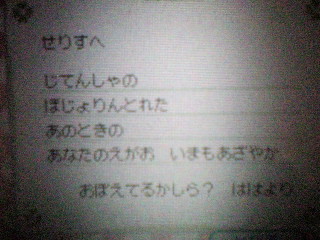 せりすへ
じてんしゃの
ほじょりんとれた
あのときの
あなたのえがお　いまもあざやか
おぼえてるかしら？　ははより